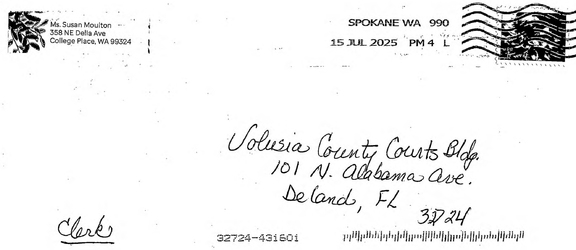 Ms. Susan Moulton
358 NE Della Ave
College Place, WA 99324
SPOKANE WA 990
15 JUL 2025 PM 4 L
Volusia County Courts Bldg.
101 N. Alabama Ave.
DeLand, FL
32724
Clerk
32724-431601